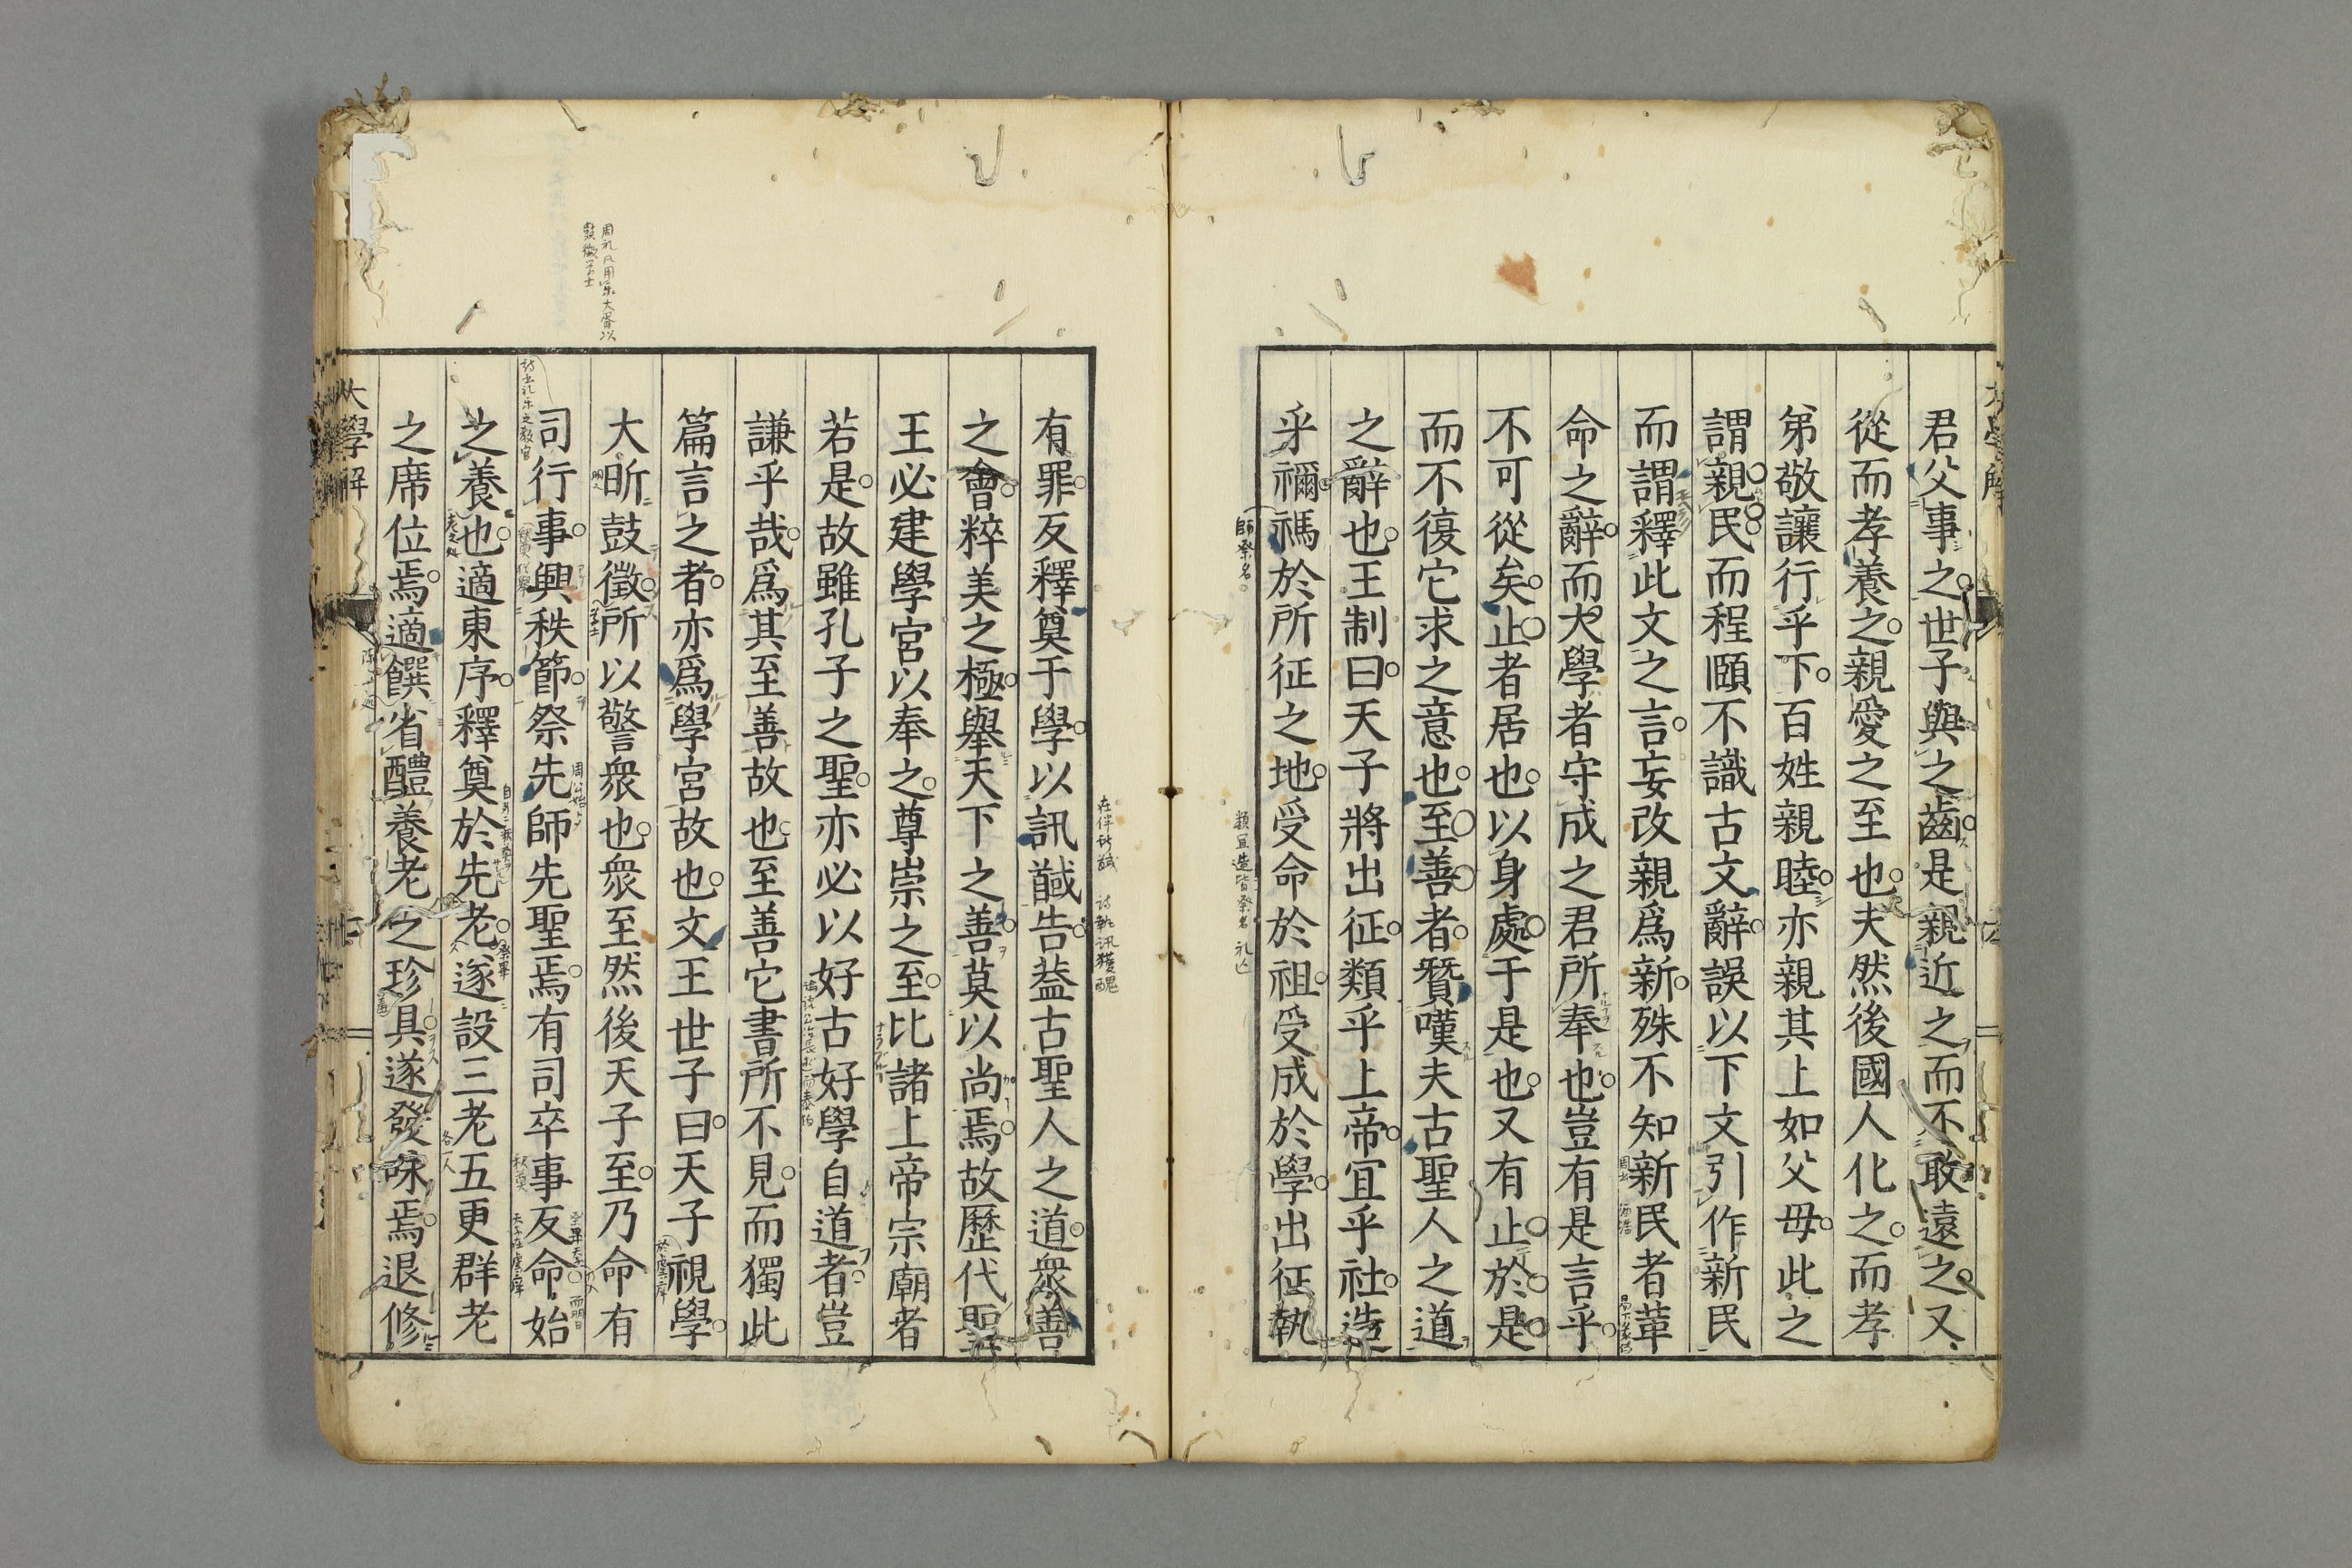 君父事之世子與之齒是親近之而不敢遠之又
從而孝養之親愛之至也夫然後國人化之而孝
弟敬讓行乎下百姓親睦亦親其上如父母此之
謂親民而程頤不識古文辭誤以下文引作新民
而謂釋此文之言妄改親爲新殊不知新民者革
命之辭而大學者守成之君所奉也豈有是言乎
不可從矣止者居也以身處于是也又有止於是
而不復它求之意也至善者贊嘆夫古聖人之道
之辭也王制曰天子將出征類乎上帝宜乎社造
乎禰禡於所征之地受命於祖受成於學出征執
師祭名
類宜造皆祭名
有罪反釋奠于學以訊馘告葢古聖人之道衆善
之會粹美之極舉天下之善莫以尚焉故歷代聖
王必建學宮以奉之尊崇之至比諸上帝宗廟者
若是故雖孔子之聖亦必以好古好學自道者豈
謙乎哉爲其至善故也至善它書所不見而獨此
篇言之者亦爲學宮故也文王世子曰天子視學
大昕鼓徵所以警衆也衆至然後天子至乃命有
司行事興秩節祭先師先聖焉有司卒事反命始
之養也適東序釋奠於先老遂設三老五更群老
之席位焉適饌省醴養老之珍具遂發咏焉退修
大學解
周礼凡用樂大胥以
鼓徵学士